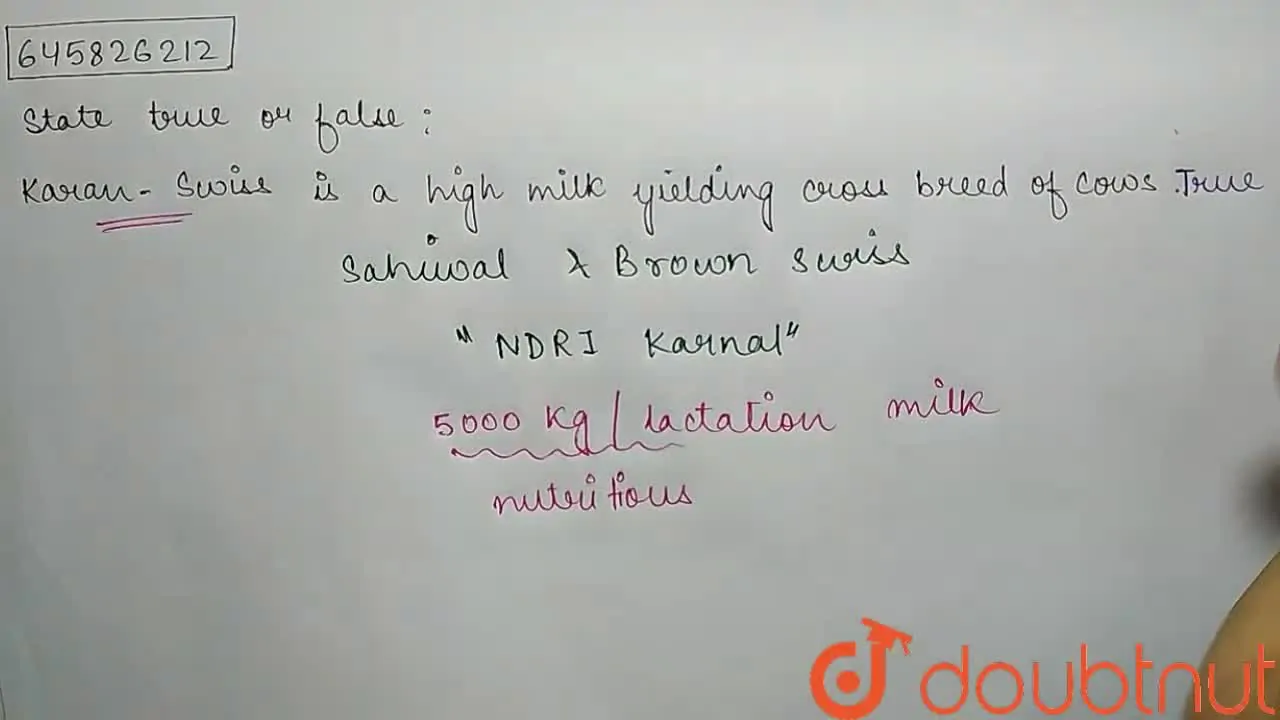 645826212
State true or false :
Karan - Swiss is a high milk yielding cross breed of cows . True
Sahiwal x Brown swiss
" NDRI Karnal "
5000 Kg / lactation milk
nutritious
doubtnut